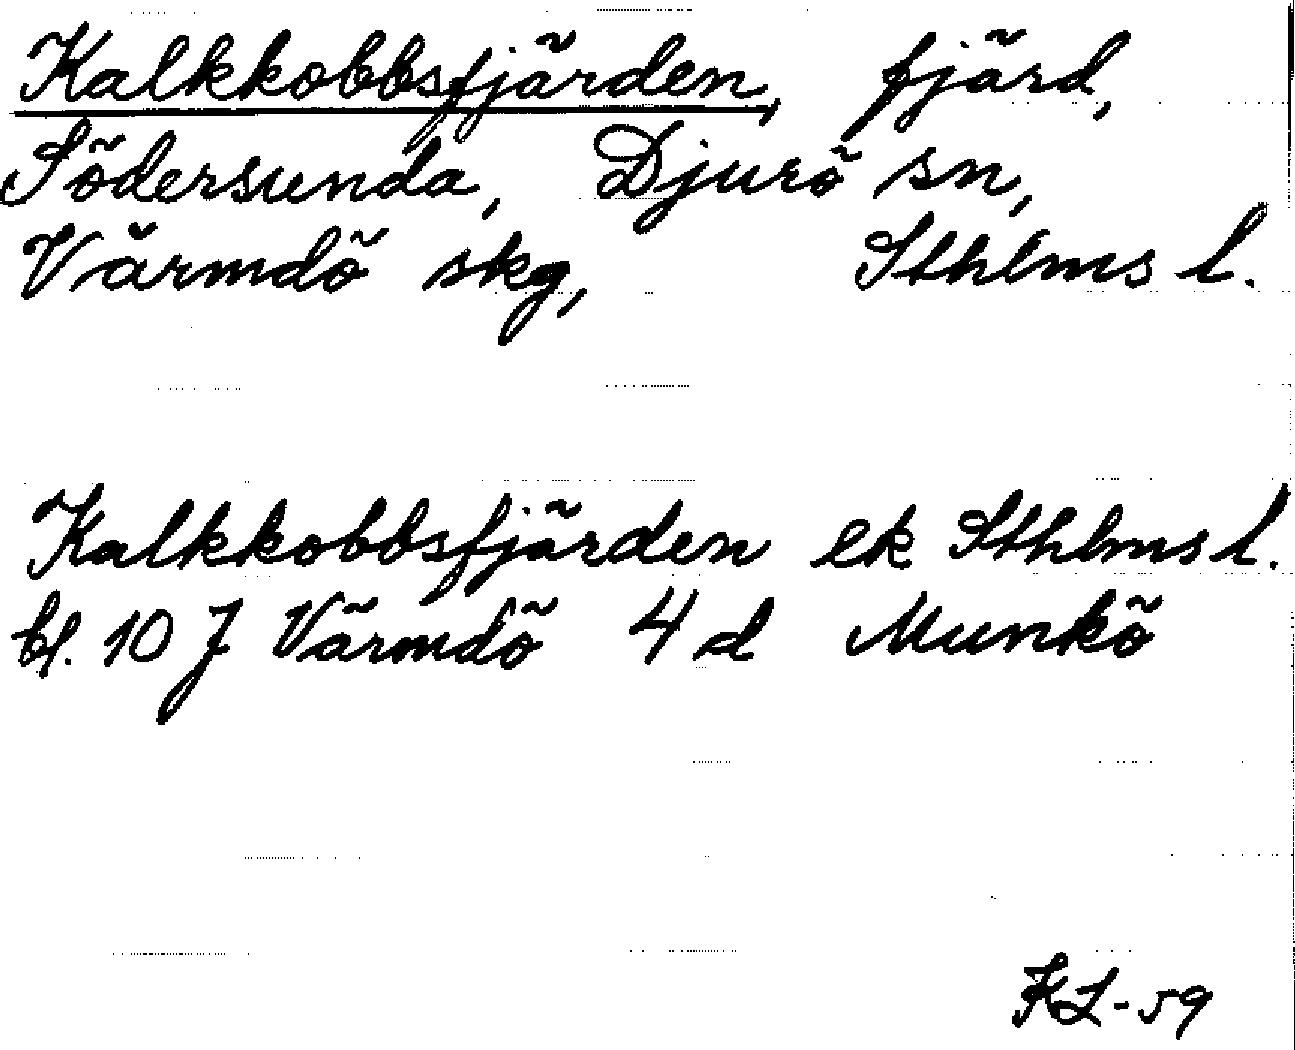 Kalkkobbsfjärden, fjärd,
Södersunda, Djurö sn,
Värmdö skg, Sthlms l.
Kalkkobbsfjärden ek Sthlms l.
bl. 10 J Värmdö 4 d Munkö
KL-59